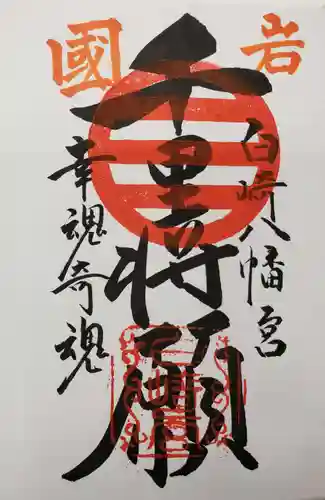 岩國
白崎八幡宮
千里将願
幸魂奇魂